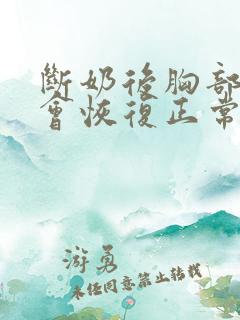 斷奶後胸部
會恢復正常
游勇
未任同意禁止轉載